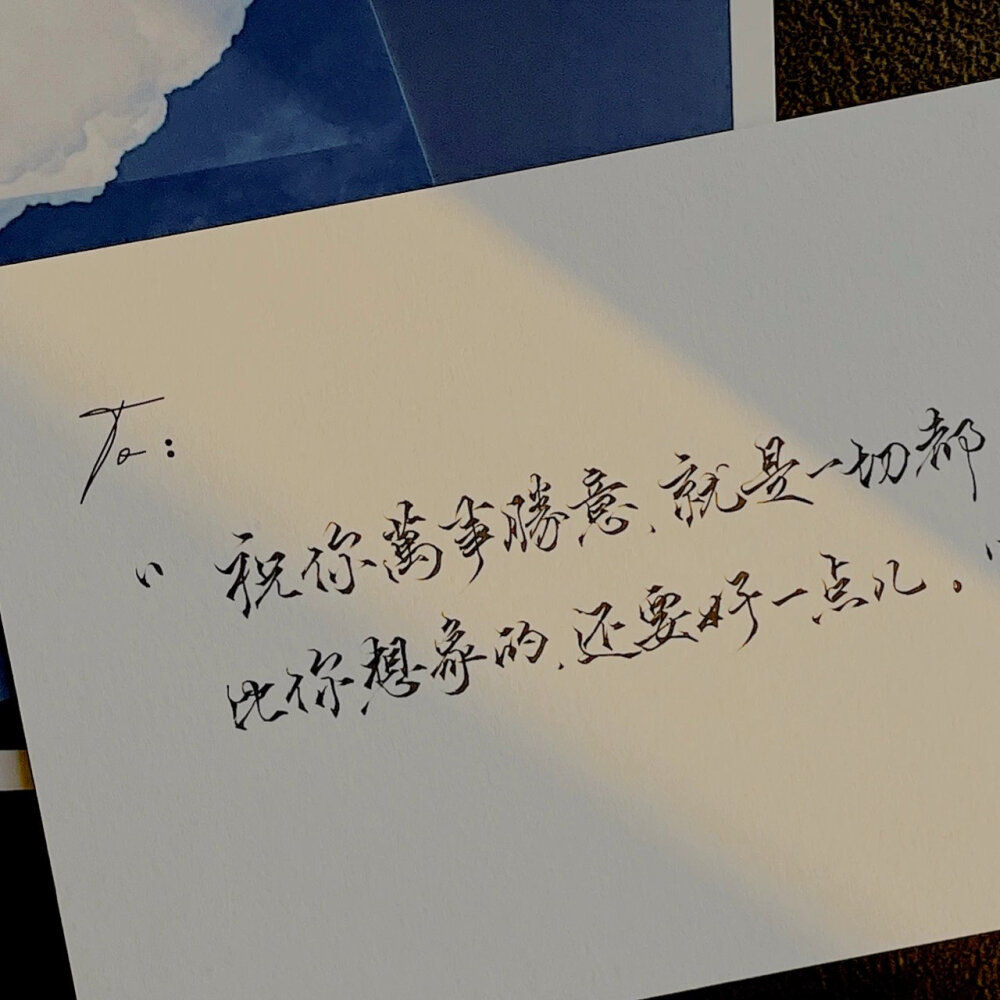 To:
"祝你萬事勝意,就是一切都
比你想象的,还要好一点儿。"